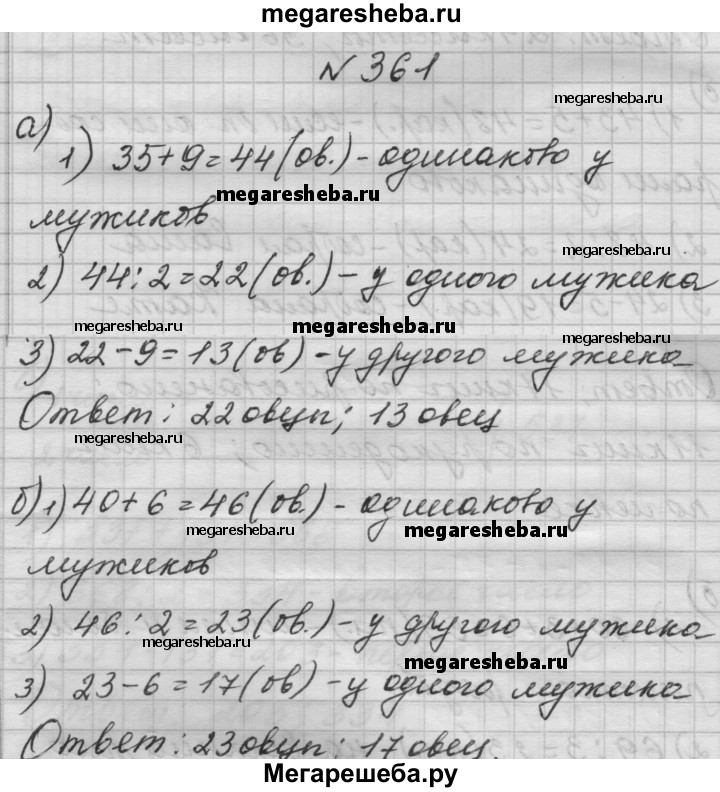 megaresheba.ru
N 361
megaresheba.ru
а)
1) 35+9=44(ов.) - одинаково у
megaresheba.ru
мужиков
megaresheba.ru
2) 44:2=22(ов.) - у одного мужика
megaresheba.ru megaresheba.ru megaresheba.ru
3) 22-9=13(ов) - у другого мужика
Ответ: 22 овцы; 13 овец
megaresheba.ru megaresheba.ru
б) 1) 40+6=46(ов.) - одинаково у
megaresheba.ru megaresheba.ru
мужиков
2) 46:2=23(ов.) - у другого мужика
megaresheba.ru megaresheba.ru
3) 23-6=17(ов) - у одного мужика
Ответ: 23 овцы; 17 овец.
Мегарешеба.ру